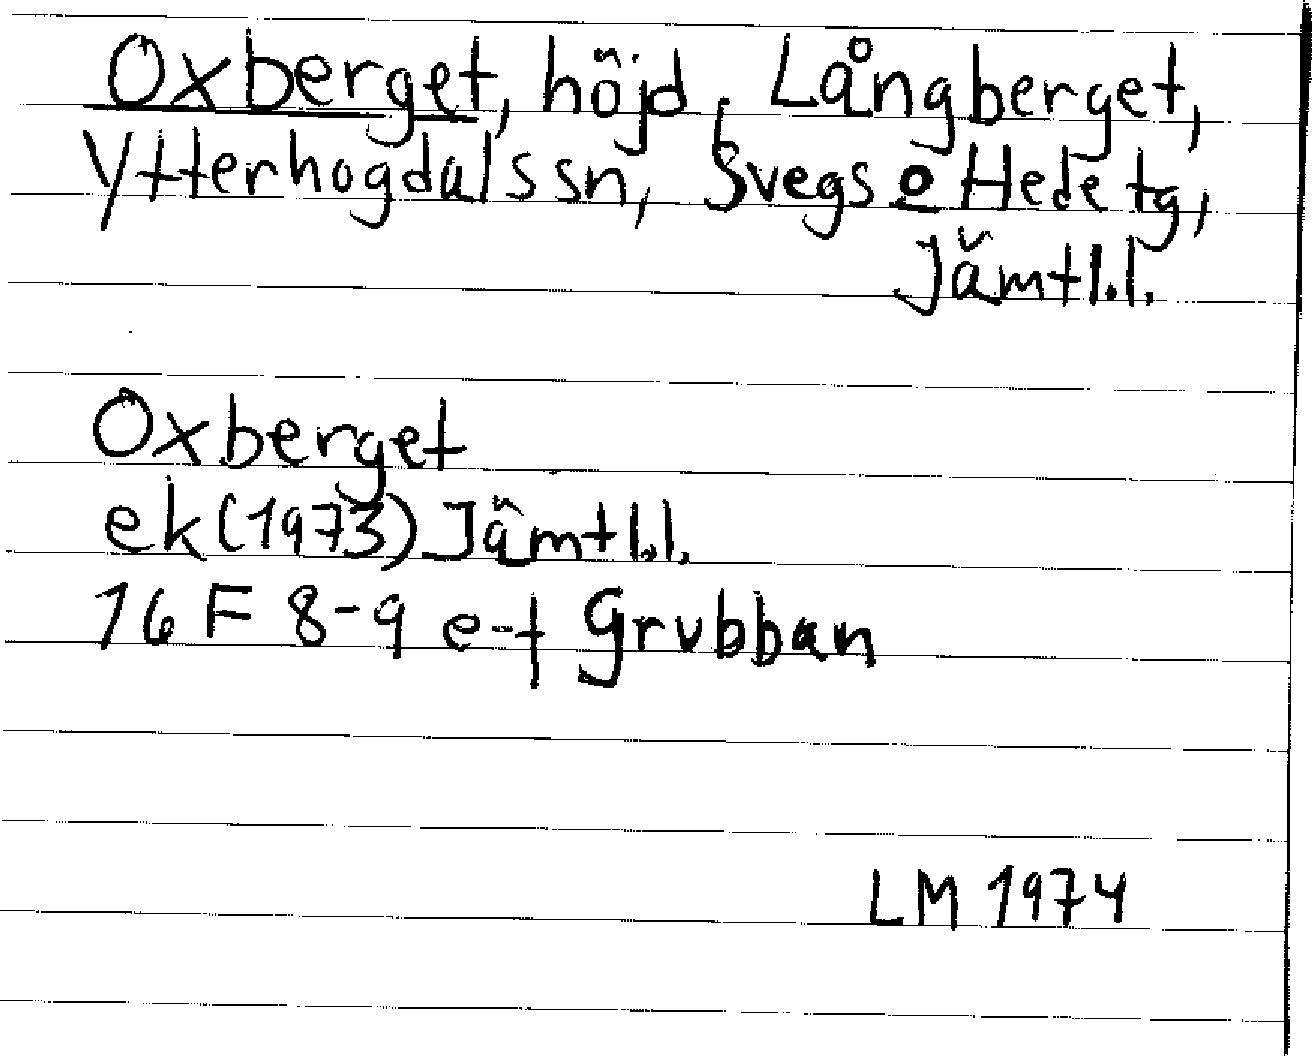 Oxberget, höjd, Långberget,
Ytterhogdals sn, Svegs o Hede tg,
Jämtl.l.
Oxberget
ek (1973) Jämtl.l.
16 F 8-9 e-f Grubban
LM 1974